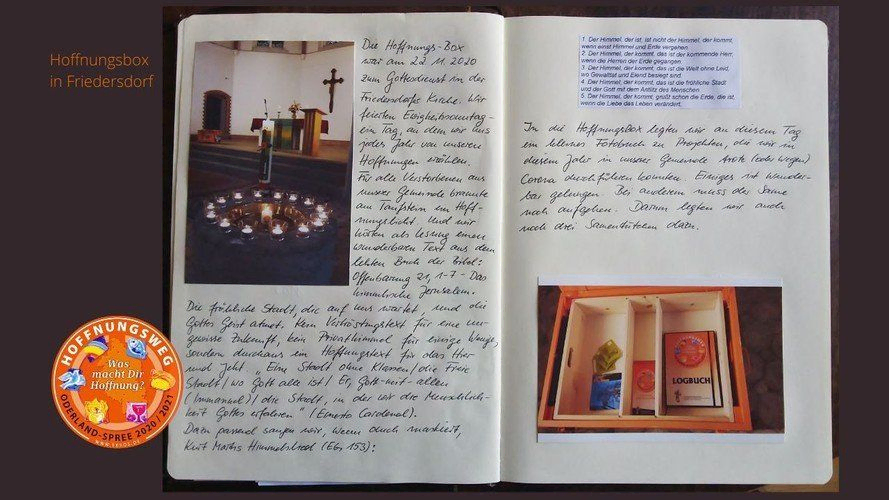 Hoffnungsbox
in Friedersdorf
Die Hoffnungs-Box
war am 22.11.2020
zum Gottesdienst in der
Friedersdorfer Kirche. Wir
feierten Ewigkeitssonntag -
ein Tag, an dem wir uns
jedes Jahr von unseren
Hoffnungen erzählen.
Für alle Verstorbenen aus
unserer Gemeinde brannte
am Taufstein ein Hoff-
nungslicht. Und wir
hörten als Lesung einen
wunderbaren Text aus dem
letzten Buch der Bibel:
Offenbarung 21, 1-7 - Das
himmlische Jerusalem.
Die fröhliche Stadt, die auf uns wartet, und die
Gottes Geist atmet. Kein Vertröstungstext für eine un-
gewisse Zukunft, kein Privathimmel für einige Wenige,
sondern durchaus ein Hoffnungstext für das Hier
und Jetzt. "Eine Stadt ohne Klassen / die freie
Stadt / wo Gott alle ist / Er, Gott-mit-allen
(Immanuel) / die Stadt, in der wir die Menschlich-
keit Gottes erfahren" (Ernesto Cardenal).
Dazu passend sangen wir, wenn auch maskiert,
Kurt Martis Himmelslied (EG 153):
1. Der Himmel, der ist, ist nicht der Himmel, der kommt,
wenn einst Himmel und Erde vergehen.
2. Der Himmel, der kommt, das ist der kommende Herr,
wenn die Herren der Erde gegangen.
3. Der Himmel, der kommt, das ist die Welt ohne Leid,
wo Gewalttat und Elend besiegt sind.
4. Der Himmel, der kommt, das ist die fröhliche Stadt
und der Gott mit dem Antlitz des Menschen.
5. Der Himmel, der kommt, grüßt schon die Erde, die ist,
wenn die Liebe das Leben verändert.
In die Hoffnungsbox legten wir an diesem Tag
ein kleines Fotobuch zu Projekten, die wir in
diesem Jahr in unserer Gemeinde trotz (oder wegen)
Corona durchführen konnten. Einiges ist wunder-
bar gelungen. Bei anderem muss der Same
noch aufgehen. Darum legten wir auch
noch drei Samentütchen dazu.
LOGBUCH
HOFFNUNGSWEG
Was
macht Dir
Hoffnung?
ODERLAND-SPREE 2020 / 2021